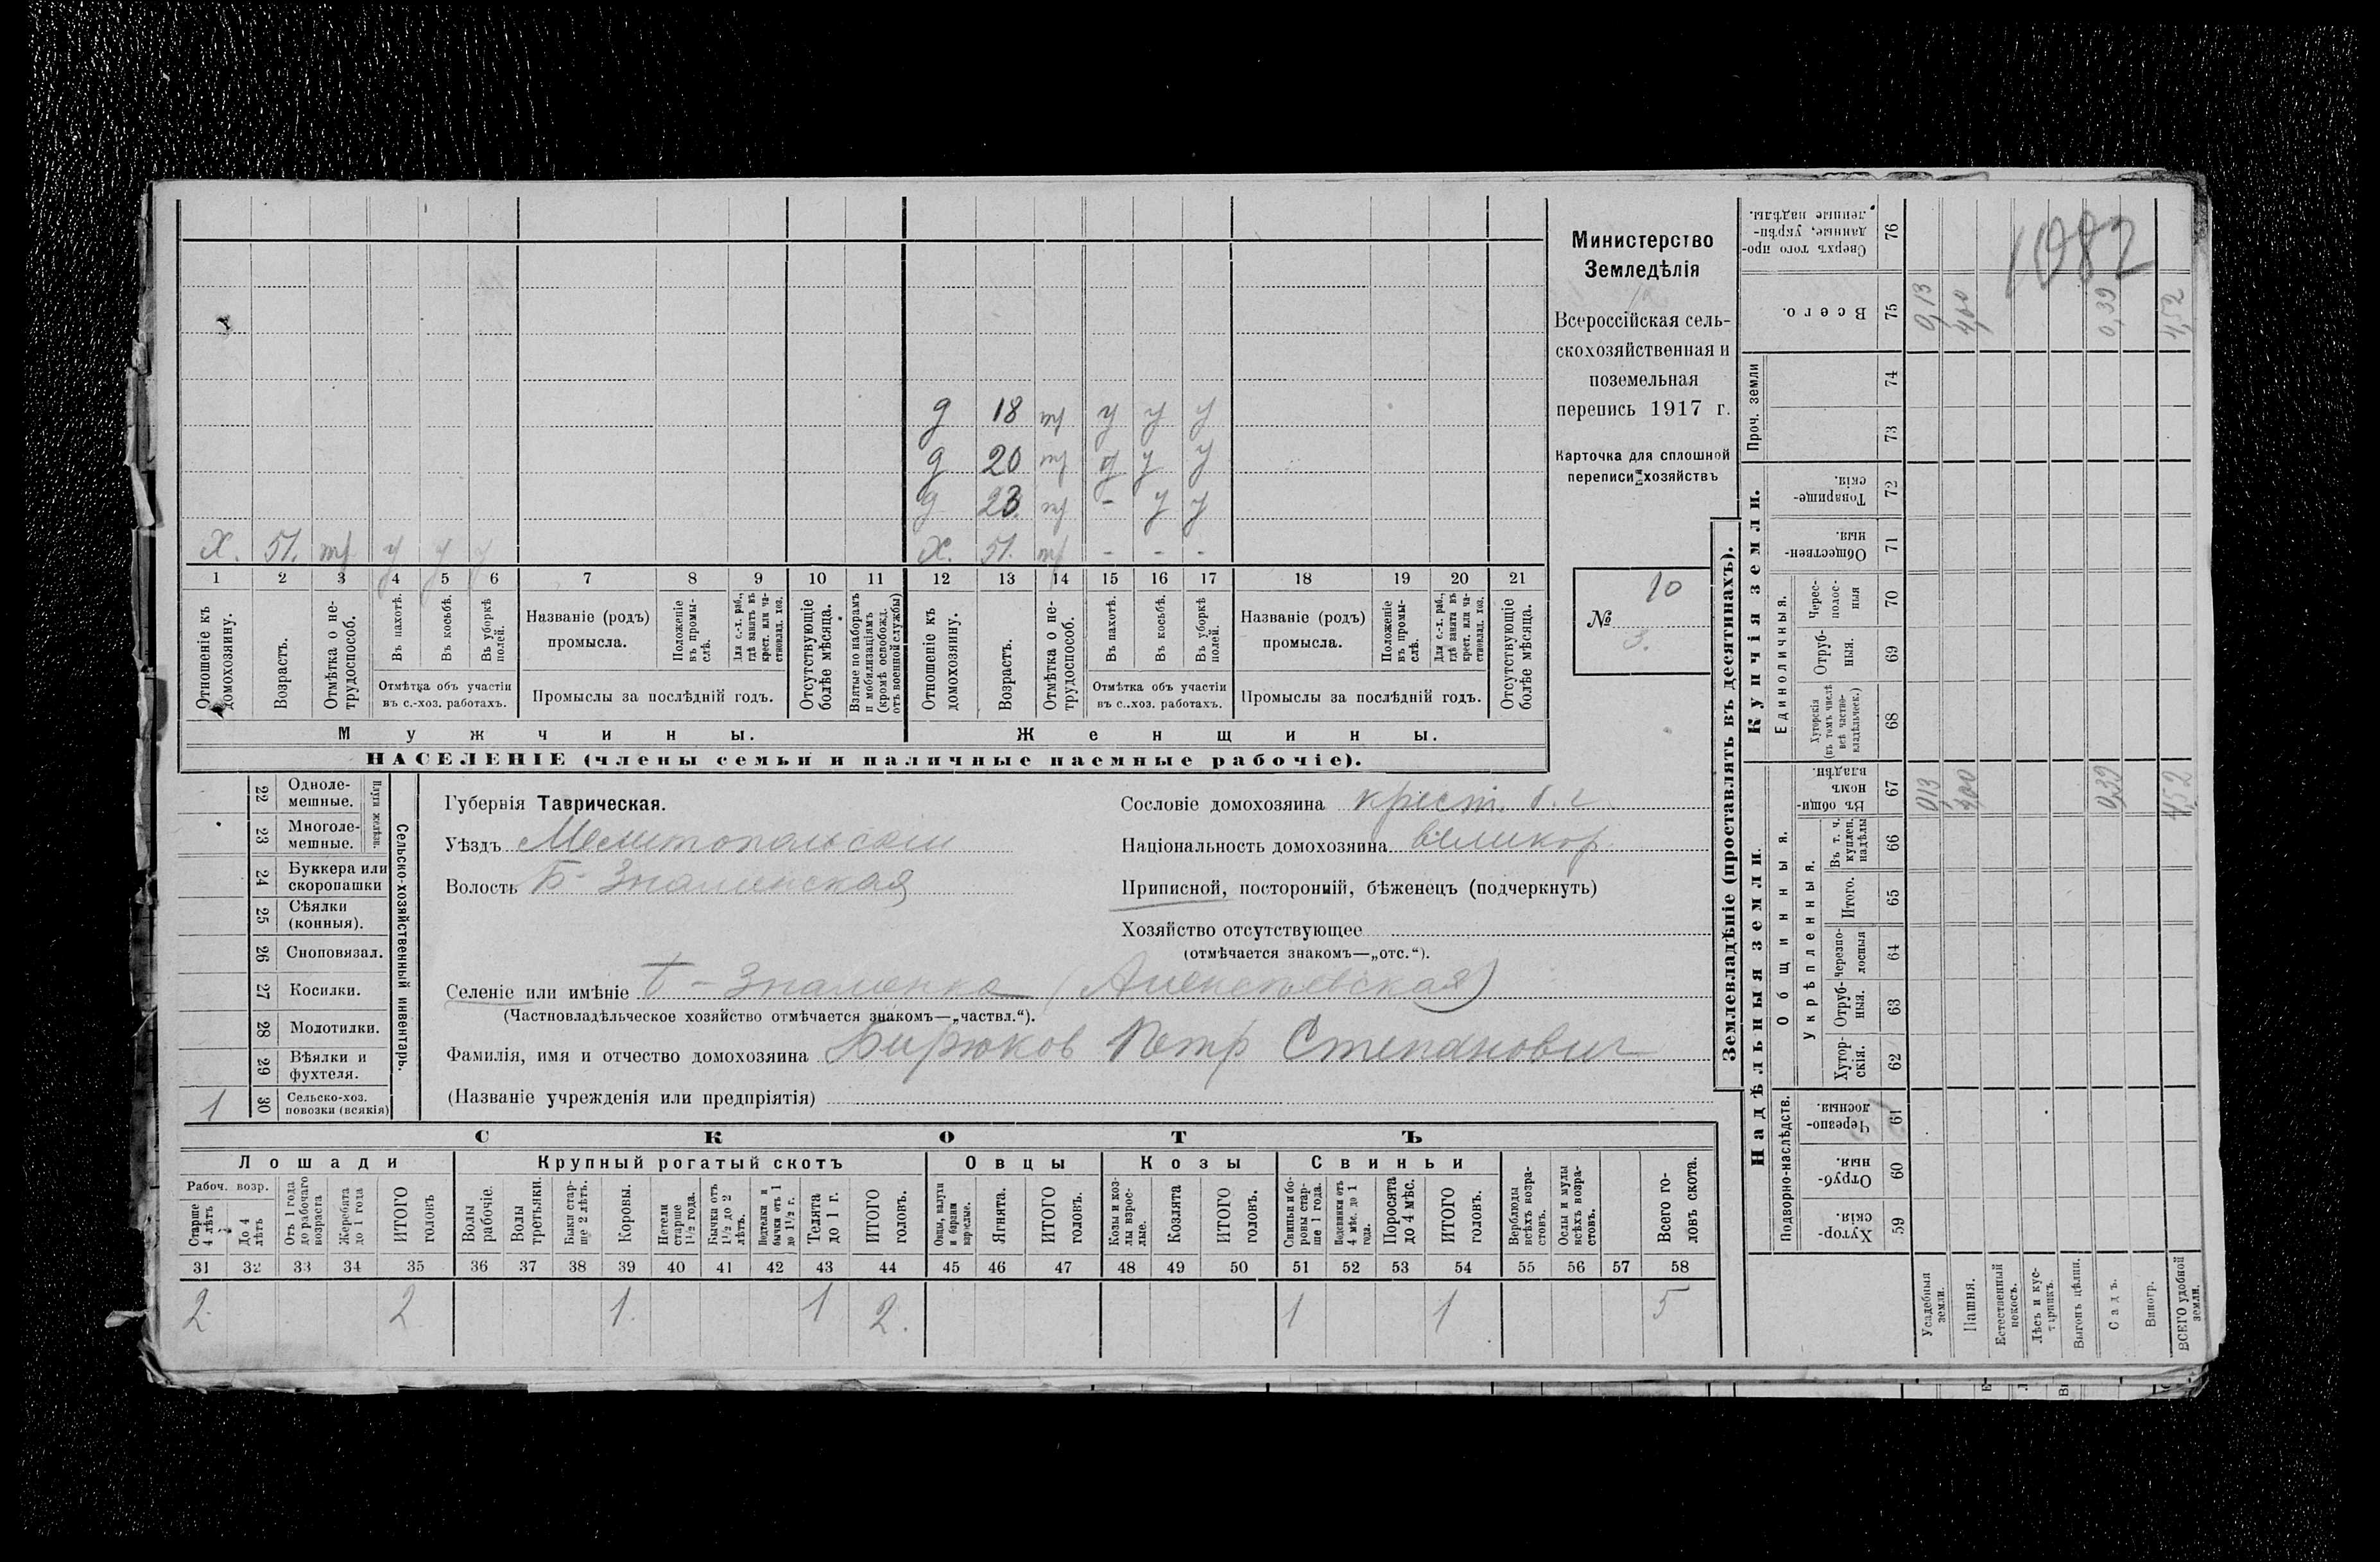 Министерство
Земледѣлія
Всероссійская сель-
скохозяйственная и
поземельная
перепись 1917 г.
Карточка для сплошной
переписи хозяйствъ
№ 10
3.
1082
д 18 тр у у у
д 20 тр у у у
д 23 тр - у у
Х. 51. тр у у у
Х. 51. тр - - -
1 2 3 4 5 6 7 8 9 10 11 12 13 14 15 16 17 18 19 20 21
Отношеніе къ домохозяину.
Возрастъ.
Отмѣтка о не-трудоспособ.
Въ пахотѣ.
Въ косьбѣ.
Въ уборкѣ полей.
Отмѣтка объ участіи
въ с.-хоз. работахъ.
Названіе (родъ)
промысла.
Положеніе въ промы-слѣ.
Для с.-х. раб., гдѣ занятъ въ крест. или ча-стновлад. хоз.
Промыслы за послѣдній годъ.
Отсутствующіе болѣе мѣсяца.
Взятые по наборамъ и мобилизаціямъ (кромѣ освобожд. отъ военной службы)
Отношеніе къ домохозяину.
Возрастъ.
Отмѣтка о не-трудоспособ.
Въ пахотѣ.
Въ косьбѣ.
Въ уборкѣ полей.
Отмѣтка объ участіи
въ с..хоз. работахъ.
Названіе (родъ)
промысла.
Положеніе въ промы-слѣ.
Для с.-х. раб., гдѣ занята въ крест. или ча-стновлад. хоз.
Промыслы за послѣдній годъ.
Отсутствующіе болѣе мѣсяца.
Мужчины.
Женщины.
НАСЕЛЕНІЕ (члены семьи и наличные наемные рабочіе).
Сельско-хозяйственный инвентарь.
Плуги желѣзн.
22 Одноле-мешные.
23 Многоле-мешные.
24 Буккера или скоропашки
25 Сѣялки (конныя).
26 Сноповязал.
27 Косилки.
28 Молотилки.
29 Вѣялки и фухтеля.
1 30 Сельско-хоз. повозки (всякія)
Губернія Таврическая.
Уѣздъ Мелитопольский
Волость Б-Знаменская
Сословіе домохозяина крест. б. г.
Національность домохозяина великор.
Приписной, посторонній, бѣженецъ (подчеркнуть)
Хозяйство отсутствующее
(отмѣчается знакомъ—„отс.“).
Селеніе или имѣніе Б-Знаменка (Алексеевская)
(Частновладѣльческое хозяйство отмѣчается знакомъ—„частвл.“).
Фамилія, имя и отчество домохозяина Бирюков Петр Степанович
(Названіе учрежденія или предпріятія)
СКОТЪ
Лошади
Крупный рогатый скотъ
Овцы
Козы
Свиньи
Рабоч. возр.
Старше 4 лѣтъ
До 4 лѣтъ
Отъ 1 года до рабочаго возраста
Жеребята до 1 года
ИТОГО головъ
Волы рабочіе.
Волы третьяки.
Быки стар-ше 2 лѣтъ.
Коровы.
Нетели старше 1½ года.
Бычка отъ 1½ до 2 лѣтъ.
Подтелки и бычки отъ 1 до 1½ г.
Телята до 1 г.
ИТОГО головъ.
Овцы, валухи и бараны взрослые.
Ягнята.
ИТОГО головъ.
Козы и коз-лы взрос-лые.
Козлята
ИТОГО головъ.
Свиньи и бо-ровы стар-ше 1 года.
Подсвинки отъ 4 мѣс. до 1 года.
Поросята до 4 мѣс.
ИТОГО головъ.
Верблюды всѣхъ возра-стовъ.
Ослы и мулы всѣхъ возра-стовъ.
Всего го-ловъ скота.
31 32 33 34 35 36 37 38 39 40 41 42 43 44 45 46 47 48 49 50 51 52 53 54 55 56 57 58
2 2 1. 1 2. 1 1 5
Землевладѣніе (проставлять въ десятинахъ).
Надѣльныя земли.
Купчія земли.
Проч. земли
Подворно-наслѣдств.
Общинныя.
Укрѣпленныя.
Единоличныя.
Хутор-скія. 59
Отруб-ныя. 60
Черезпо-лосныя. 61
Хутор-скія. 62
Отруб-ныя. 63
Черезпо-лосныя 64
Итого. 65
Въ т. ч. куплен. надѣлы 66
Въ общи-номъ владѣн. 67
Хуторскія (въ томъ числѣ всѣ частно-владѣльческ.) 68
Отруб-ныя. 69
Черес-полос-ныя 70
Обществен-ныя. 71
Товарище-скія. 72
73
74
Всего. 75
Сверхъ того про-данные, укрѣ-пленные надѣлы. 76
Усадебныя земли. 0,13 0,13
Пашня. 4,00 4,00
Естественный покосъ.
Лѣсъ и кус-тарникъ.
Выгонъ цѣлин.
Садъ. 0,39 0,39
Виногр.
ВСЕГО удобной земли. 4,52 4,52